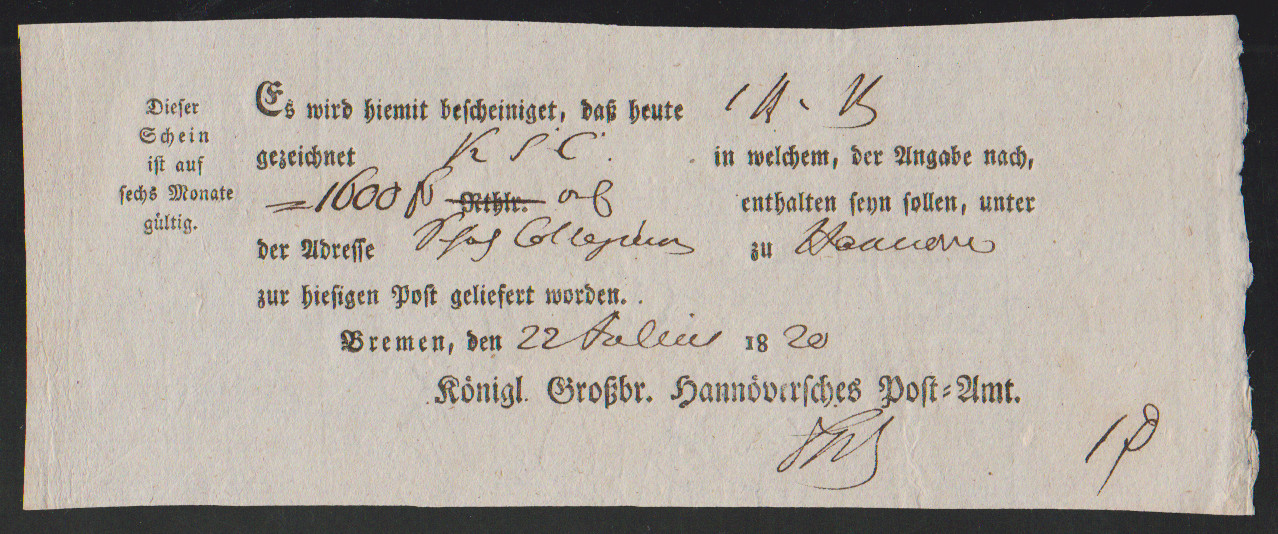 Dieser
Schein
ist auf
sechs Monate
gültig.
Es wird hiemit bescheiniget, daß heute
gezeichnet K S C. in welchem, der Angabe nach,
=1600 Rthlr. enthalten seyn sollen, unter
der Adresse Schatz Collegium zu Hannover
zur hiesigen Post geliefert worden.
Bremen, den 22 Julius 1820
Königl. Großbr. Hannöversches Post=Amt.